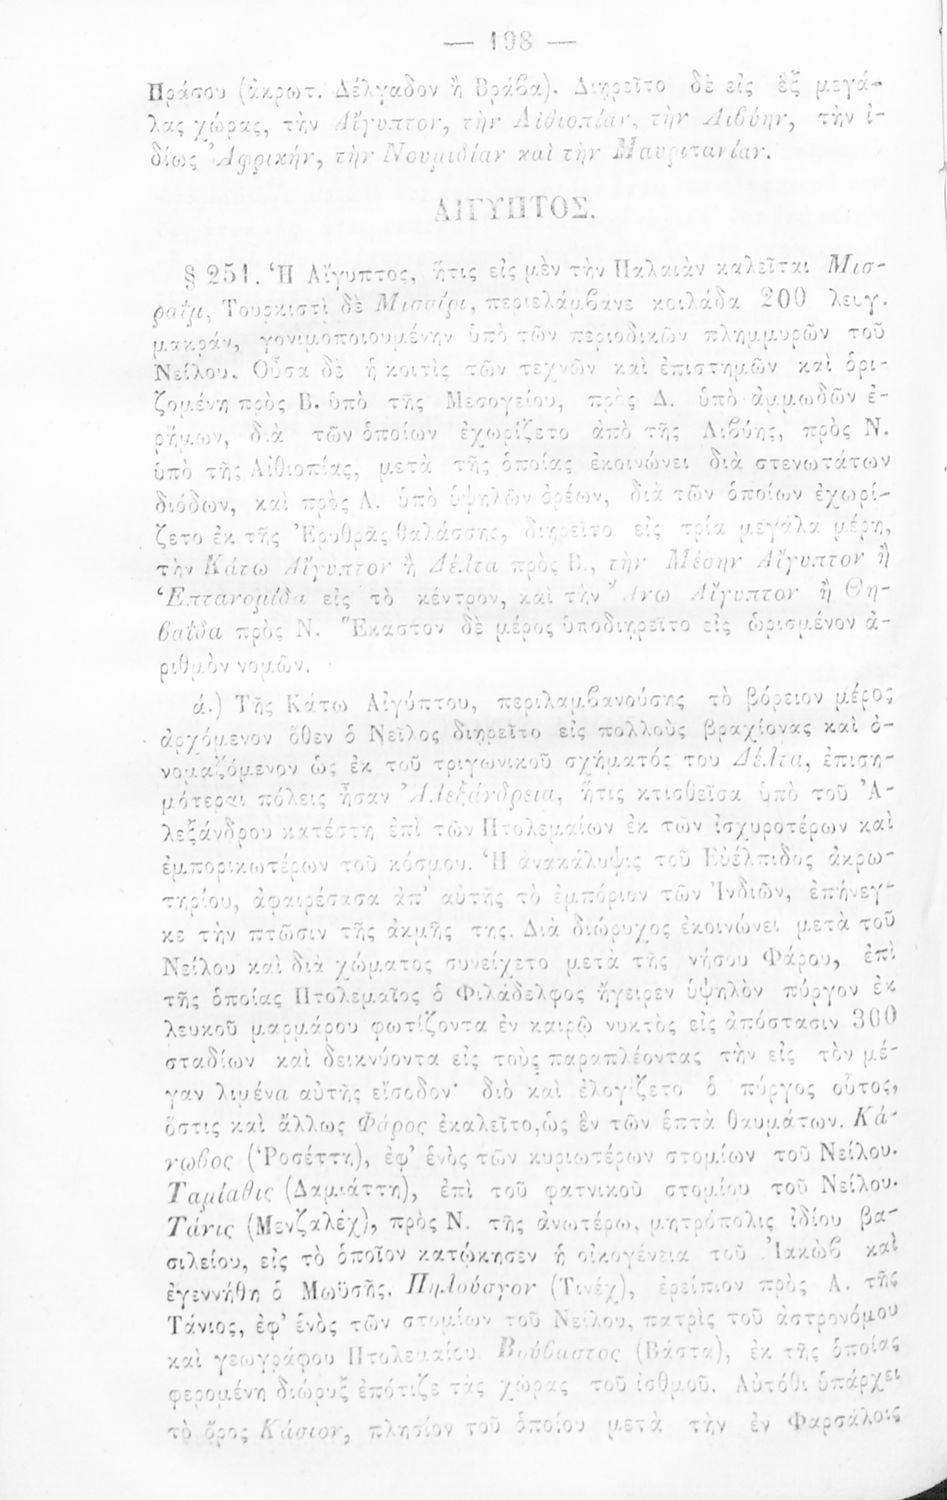 — 198 —
Πράσου (ἀκρωτ. Δέλγαδον ἢ Βράβα). Διῃρεῖτο δὲ εἰς ἓξ μεγά-
λας χώρας, τὴν Αἴγυπτον, τὴν Αἰθιοπίαν, τὴν Λιβύην, τὴν ἰ-
δίως Ἀφρικήν, τὴν Νουμιδίαν καὶ τὴν Μαυριτανίαν.
ΑΙΓΥΠΤΟΣ.
§ 251. Ἡ Αἴγυπτος, ἥτις εἰς μὲν τὴν Παλαιὰν καλεῖται Μισ-
ραΐμ, Τουρκιστὶ δὲ Μισσίρι, περιελάμβανε κοιλάδα 200 λευγ.
μακράν, γονιμοποιουμένην ὑπὸ τῶν περιοδικῶν πλημμυρῶν τοῦ
Νείλου. Οὖσα δὲ ἡ κοιτὶς τῶν τεχνῶν καὶ ἐπιστημῶν καὶ ὁρι-
ζομένη πρὸς Β. ὑπὸ τῆς Μεσογείου, πρὸς Δ. ὑπὸ ἀμμωδῶν ἐ-
ρήμων, διὰ τῶν ὁποίων ἐχωρίζετο ἀπὸ τῆς Λιβύης, πρὸς Ν.
ὑπὸ τῆς Αἰθιοπίας, μετὰ τῆς ὁποίας ἐκοινώνει διὰ στενωτάτων
διόδων, καὶ πρὸς Α. ὑπὸ ὑψηλῶν ὀρέων, διὰ τῶν ὁποίων ἐχωρί-
ζετο ἐκ τῆς Ἐρυθρᾶς θαλάσσης, διῃρεῖτο εἰς τρία μεγάλα μέρη,
τὴν Κάτω Αἴγυπτον ἢ Δέλτα πρὸς Β., τὴν Μέσην Αἴγυπτον ἢ
Ἑπτανομίδα εἰς τὸ κέντρον, καὶ τὴν Ἄνω Αἴγυπτον ἢ Θη-
βαΐδα πρὸς Ν. Ἕκαστον δὲ μέρος ὑποδιῃρεῖτο εἰς ὡρισμένον ἀ-
ριθμὸν νομῶν.
ά.) Τῆς Κάτω Αἰγύπτου, περιλαμβανούσης τὸ βόρειον μέρος
ἀρχόμενον ὅθεν ὁ Νεῖλος διῃρεῖτο εἰς πολλοὺς βραχίονας καὶ ὀ-
νομαζόμενον ὡς ἐκ τοῦ τριγωνικοῦ σχήματός του Δέλτα, ἐπιση-
μότεραι πόλεις ἦσαν Ἀλεξάνδρεια, ἥτις κτισθεῖσα ὑπὸ τοῦ Ἀ-
λεξάνδρου κατέστη ἐπὶ τῶν Πτολεμαίων ἐκ τῶν ἰσχυροτέρων καὶ
ἐμπορικωτέρων τοῦ κόσμου. Ἡ ἀνακάλυψις τοῦ Εὐέλπιδος ἀκρω-
τηρίου, ἀφαιρέσασα ἀπ’ αὐτῆς τὸ ἐμπόριον τῶν Ἰνδιῶν, ἐπήνεγ-
κε τὴν πτῶσιν τῆς ἀκμῆς της. Διὰ διώρυχος ἐκοινώνει μετὰ τοῦ
Νείλου καὶ διὰ χώματος συνείχετο μετὰ τῆς νήσου Φάρου, ἐπὶ
τῆς ὁποίας Πτολεμαῖος ὁ Φιλάδελφος ἤγειρεν ὑψηλὸν πύργον ἐκ
λευκοῦ μαρμάρου φωτίζοντα ἐν καιρῷ νυκτὸς εἰς ἀπόστασιν 300
σταδίων καὶ δεικνύοντα εἰς τοὺς παραπλέοντας τὴν εἰς τὸν μέ-
γαν λιμένα αὐτῆς εἴσοδον· διὸ καὶ ἐλογίζετο ὁ πύργος οὗτος,
ὅστις καὶ ἄλλως Φάρος ἐκαλεῖτο, ὡς ἓν τῶν ἑπτὰ θαυμάτων. Κά-
νωβος (Ῥοσέττη), ἐφ’ ἑνὸς τῶν κυριωτέρων στομίων τοῦ Νείλου.
Ταμίαθις (Δαμιάττη), ἐπὶ τοῦ φατνικοῦ στομίου τοῦ Νείλου.
Τάνις (Μενζαλέχ), πρὸς Ν. τῆς ἀνωτέρω, μητρόπολις ἰδίου βα-
σιλείου, εἰς τὸ ὁποῖον κατῴκησεν ἡ οἰκογένεια τοῦ Ἰακὼβ καὶ
ἐγεννήθη ὁ Μωϋσῆς. Πηλούσγον (Τινέχ), ἐρείπιον πρὸς Α. τῆς
Τάνιος, ἐφ’ ἑνὸς τῶν στομίων τοῦ Νείλου, πατρὶς τοῦ ἀστρονόμου
καὶ γεωγράφου Πτολεμαίου. Βούβαστος (Βάστα), ἐκ τῆς ὁποίας
φερομένη διώρυξ ἐπότιζε τὰς χώρας τοῦ ἰσθμοῦ. Αὐτόθι ὑπάρχει
τὸ ὄρος Κάσιον, πλησίον τοῦ ὁποίου μετὰ τὴν ἐν Φαρσάλοις